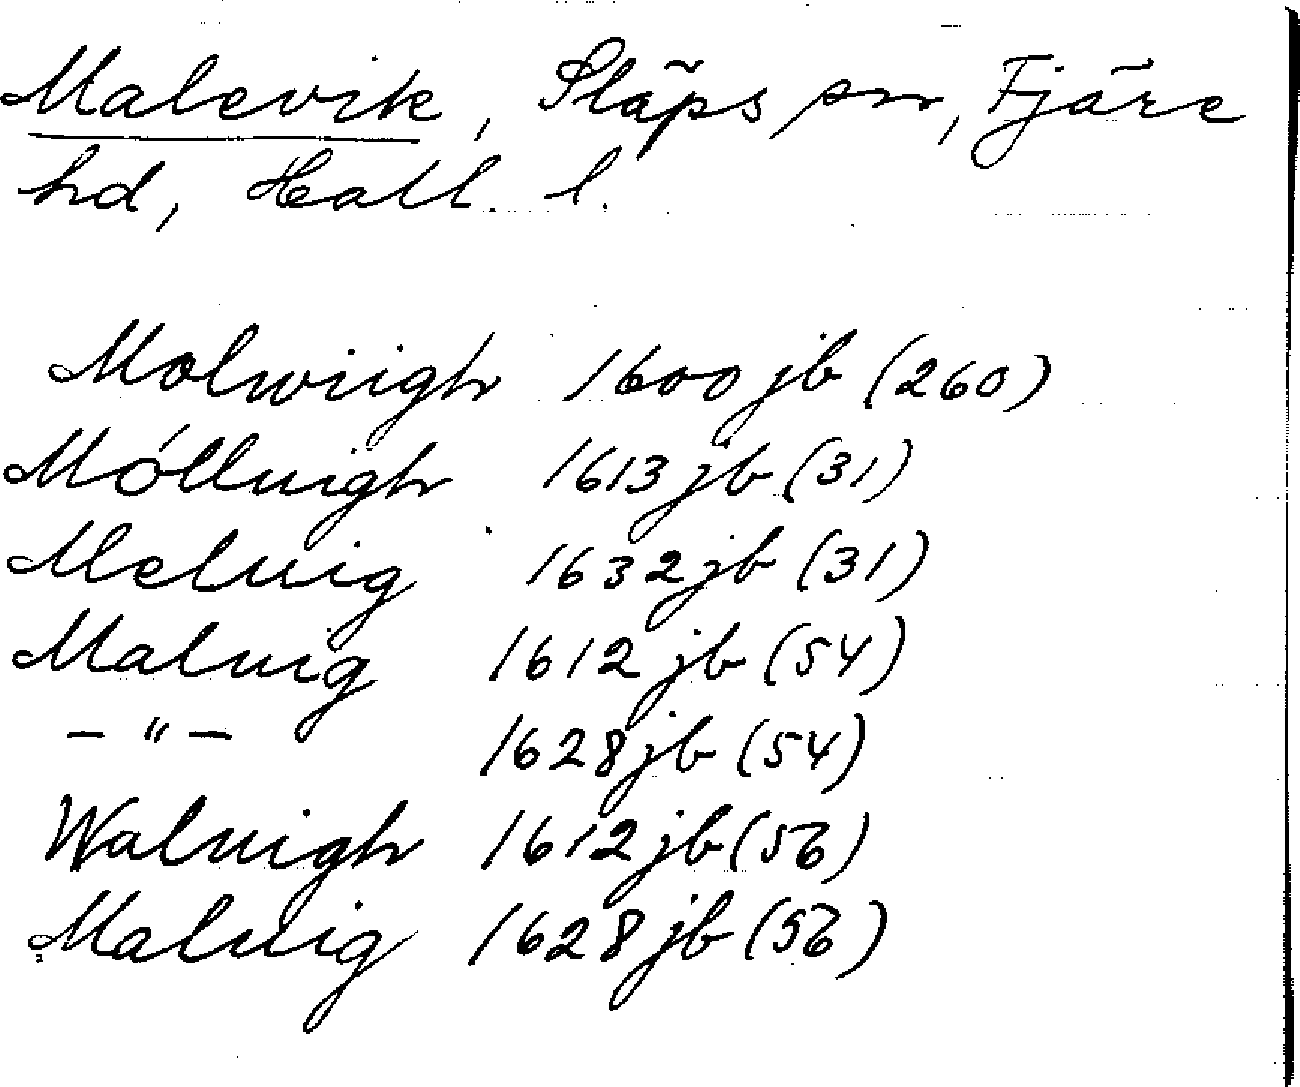 Malevik, Släps sn, Fjäre
hd, Hall. l.
Molwiigh 1600 jb (260)
Mólluigh 1613 jb (31)
Meluig 1632 jb (31)
Maluig 1612 jb (54)
— " — 1628 jb (54)
Waluigh 1612 jb (56)
Maluig 1628 jb (56)